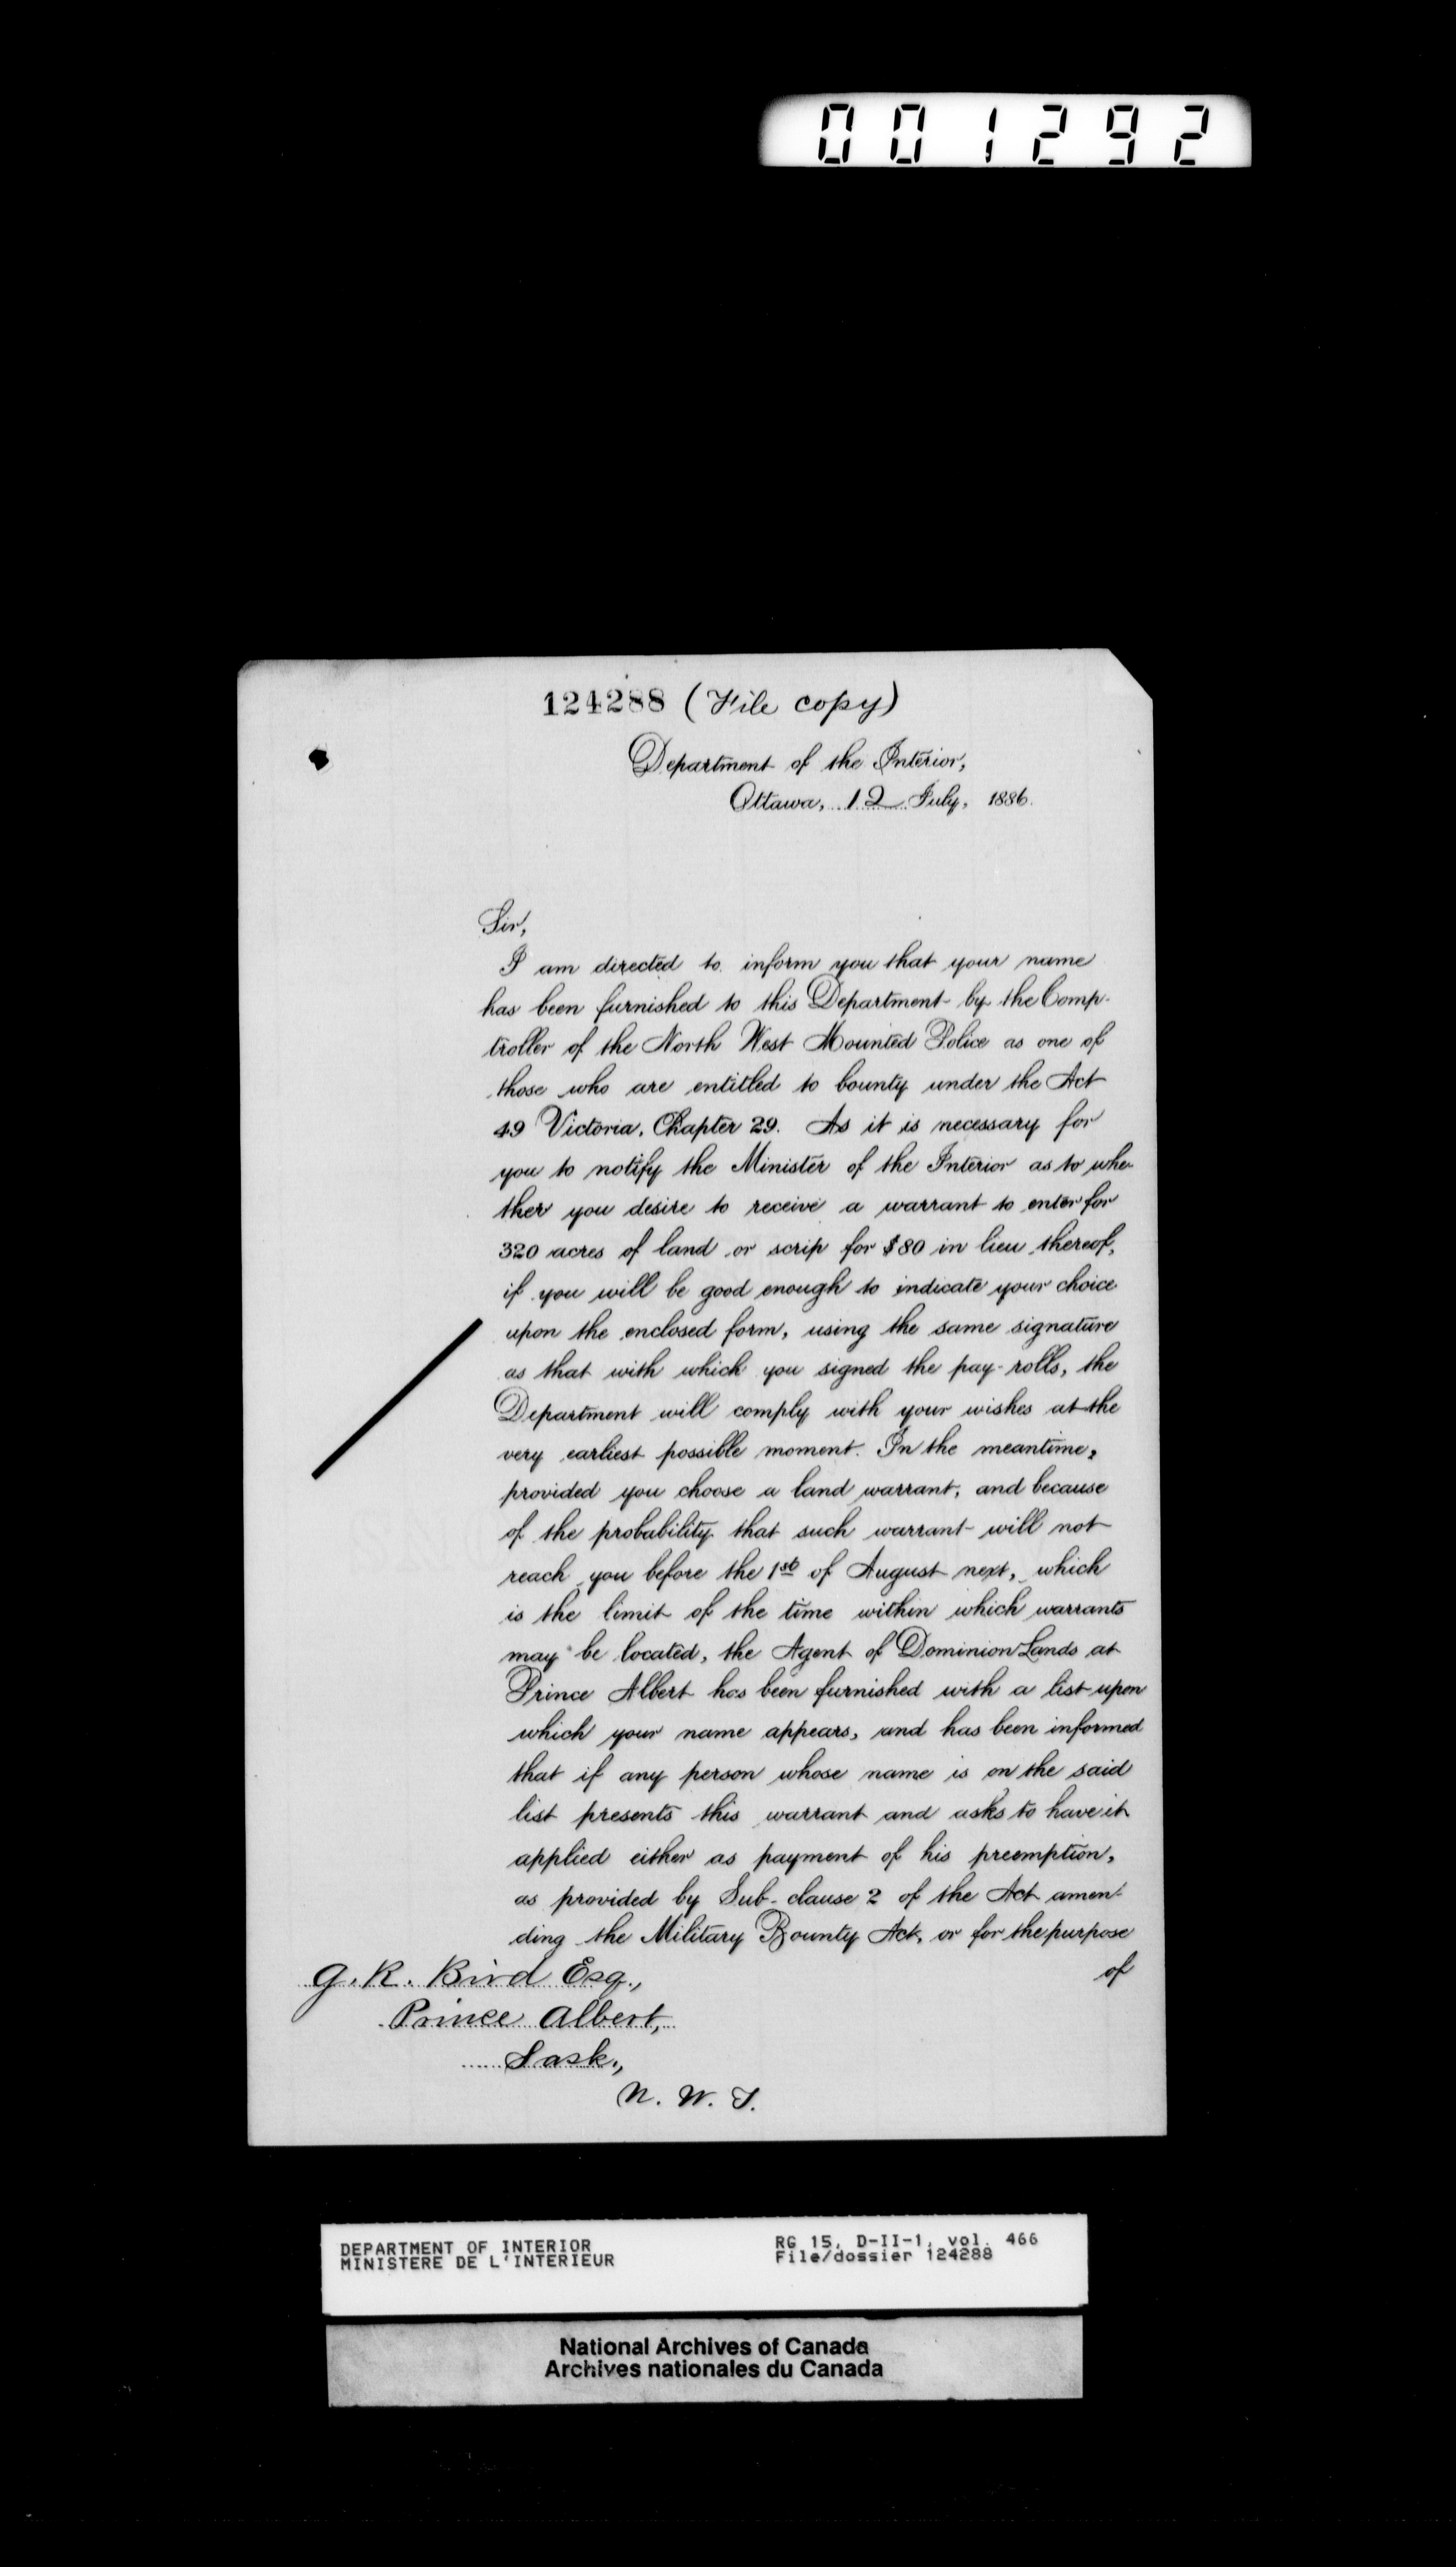 001292
124288 (File copy)
Department of the Interior,
Ottawa, 12 July, 1886.
Sir,
I am directed to inform you that your name
has been furnished to this Department by the Comp-
troller of the North West Mounted Police as one of
those who are entitled to bounty under the Act
49 Victoria, Chapter 29. As it is necessary for
you to notify the Minister of the Interior as to whe-
ther you desire to receive a warrant to enter for
320 acres of land or scrip for $80 in lieu thereof,
if you will be good enough to indicate your choice
upon the enclosed form, using the same signature
as that with which you signed the pay-rolls, the
Department will comply with your wishes at the
very earliest possible moment. In the meantime,
provided you choose a land warrant, and because
of the probability that such warrant will not
reach you before the 1st of August next, which
is the limit of the time within which warrants
may be located, the Agent of Dominion Lands at
Prince Albert has been furnished with a list upon
which your name appears, and has been informed
that if any person whose name is on the said
list presents this warrant and asks to have it
applied either as payment of his preemption,
as provided by Sub-clause 2 of the Act amen-
ding the Military Bounty Act, or for the purpose
of
G. R. Bird Esq.,
Prince Albert,
Sask.,
N. W. T.
DEPARTMENT OF INTERIOR RG 15, D-II-1, vol. 466
MINISTERE DE L'INTERIEUR File/dossier 124288
National Archives of Canada
Archives nationales du Canada